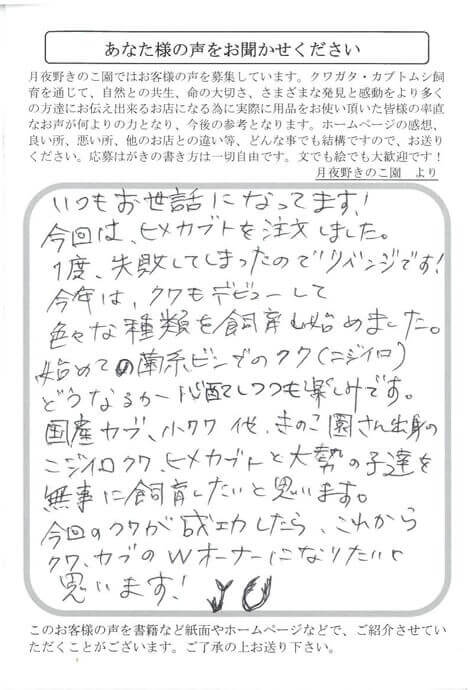 あなた様の声をお聞かせください
月夜野きのこ園ではお客様の声を募集しています。クワガタ・カブトムシ飼
育を通じて、自然との共生、命の大切さ、さまざまな発見と感動をより多く
の方達にお伝え出来るお店になる為に実際に用品をお使い頂いた皆様の率直
なお声が何よりの力となり、今後の参考となります。ホームページの感想、
良い所、悪い所、他のお店との違い等、どんな事でも結構ですので、お送り
ください。応募はがきの書き方は一切自由です。文でも絵でも大歓迎です！
月夜野きのこ園　より
いつもお世話になってます！
今回は、ヒメカブトを注文しました。
1度、失敗してしまったのでリバンジです！
今年は、クワもデビューして
色々な種類を飼育し始めました。
始めての菌糸ビンでのクワ(ニジイロ)
どうなるか心配しつつも楽しみです。
国産カブ、小クワ他、きのこ園さん出身の
ニジイロクワ、ヒメカブトと大勢の子達を
無事に飼育したいと思います。
今回のクワが成功したら、これから
クワ、カブのWオーナーになりたいと
思います！
このお客様の声を書籍など紙面やホームページなどで、ご紹介させてい
ただくことがございます。ご了承の上お送り下さい。